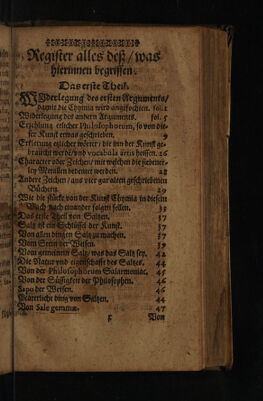 Register alles deß/ was
hierinnen begriffen.
Das erste Theil.
Widerlegung des ersten Arguments/
damit die Chymia wird angefochten. fol.1
Widerlegung des andern Arguments. fol. 5
Erzehlung etlicher Philosophorum, so von die-
ser Kunst etwas geschrieben. 9
Erklerung etlicher wörter/ die inn der Kunst ge-
braucht werden/ und vocabula artis heissen. 26
Character oder Zeichen/ mit welchen die sieben
ley Metallen bedeutet werden. 28
Andere Zeichen/ aus vier gar alten geschriebenen
Büchern. 29
Wie die stücke von der Kunst Chymia in diesem
Buch nach einander folgen sollen.
Das erste Theil von Saltzen.
Saltz ist ein Schlüssel der Kunst.
Von allen dingen Saltz zu machen. 37
Vom Stein der Weisen. 39
Vom gemeinem Saltz/ was das Saltz sey. 42
Die Natur und eigenschafft des Saltzes. 44
Von der Philosophorum Salarmoniac. 45
Von der Süssigkeit der Philosophen. 46
Sapo der Weisen. 46
Wetterliche ding von Saltzen. 44
Von Sale gemmæ. 47
Von